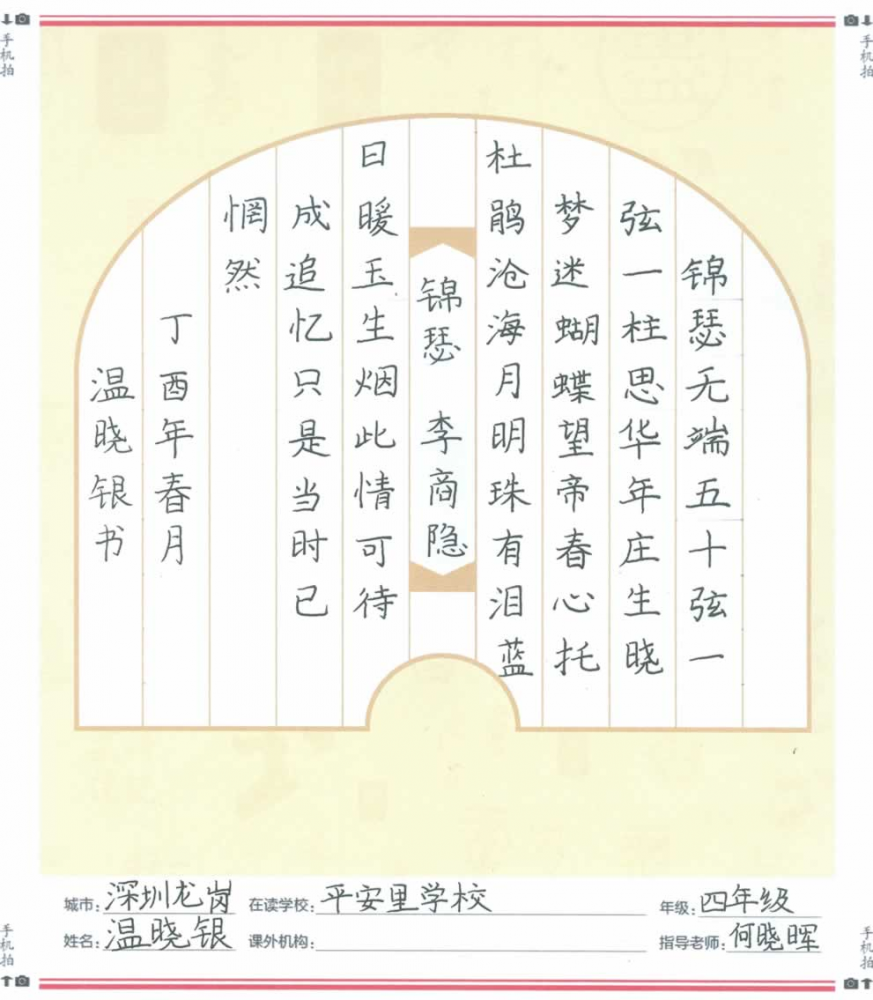 手机拍
手机拍
锦瑟无端五十弦一
弦一柱思华年庄生晓
梦迷蝴蝶望帝春心托
杜鹃沧海月明珠有泪蓝
锦瑟 李商隐
日暖玉生烟此情可待
成追忆只是当时已
惘然
丁酉年春月
温晓银书
城市:深圳龙岗 在读学校:平安里学校 年级:四年级
姓名:温晓银 课外机构: 指导老师:何晓晖
手机拍
手机拍